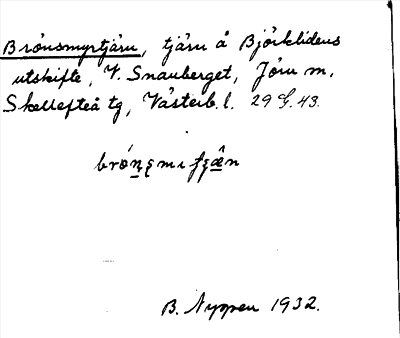 Brónsmyrtjärn, tjärn å Björklidens
utskifte, V. Snauberget, Jörn m,
Skellefteå tg, Västerb. l. 29 G. 43.
B. Nyppen 1932.